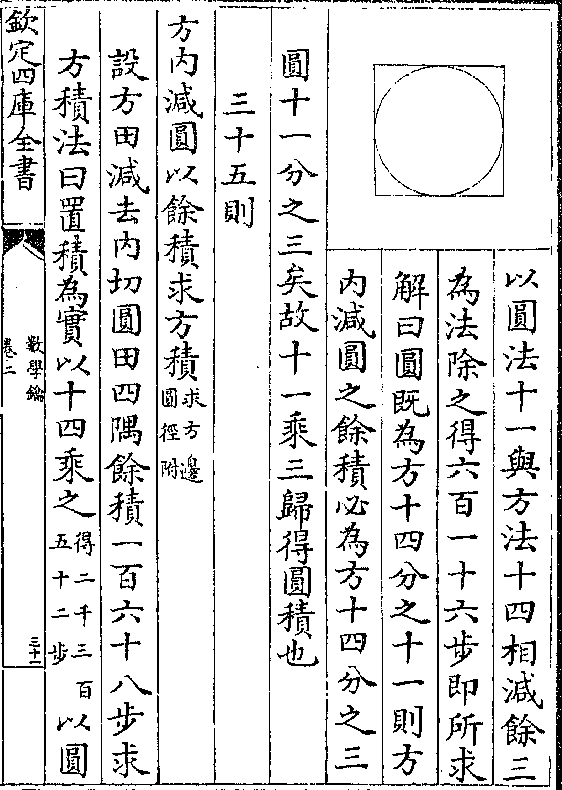 以圓法十一與方法十四相減餘三
為法除之得六百一十六步即所求
解曰圓既為方十四分之十一則方
內減圓之餘積必為方十四分之三
圓十一分之三矣故十一乘三歸得圓積也
三十五則
方內減圓以餘積求方積求方邊圓徑附
設方田減去內切圓田四隅餘積一百六十八步求
方積法曰置積為實以十四乘之得二千三百五十二步以圓
欽定四庫全書
數學鑰
卷二
三十一